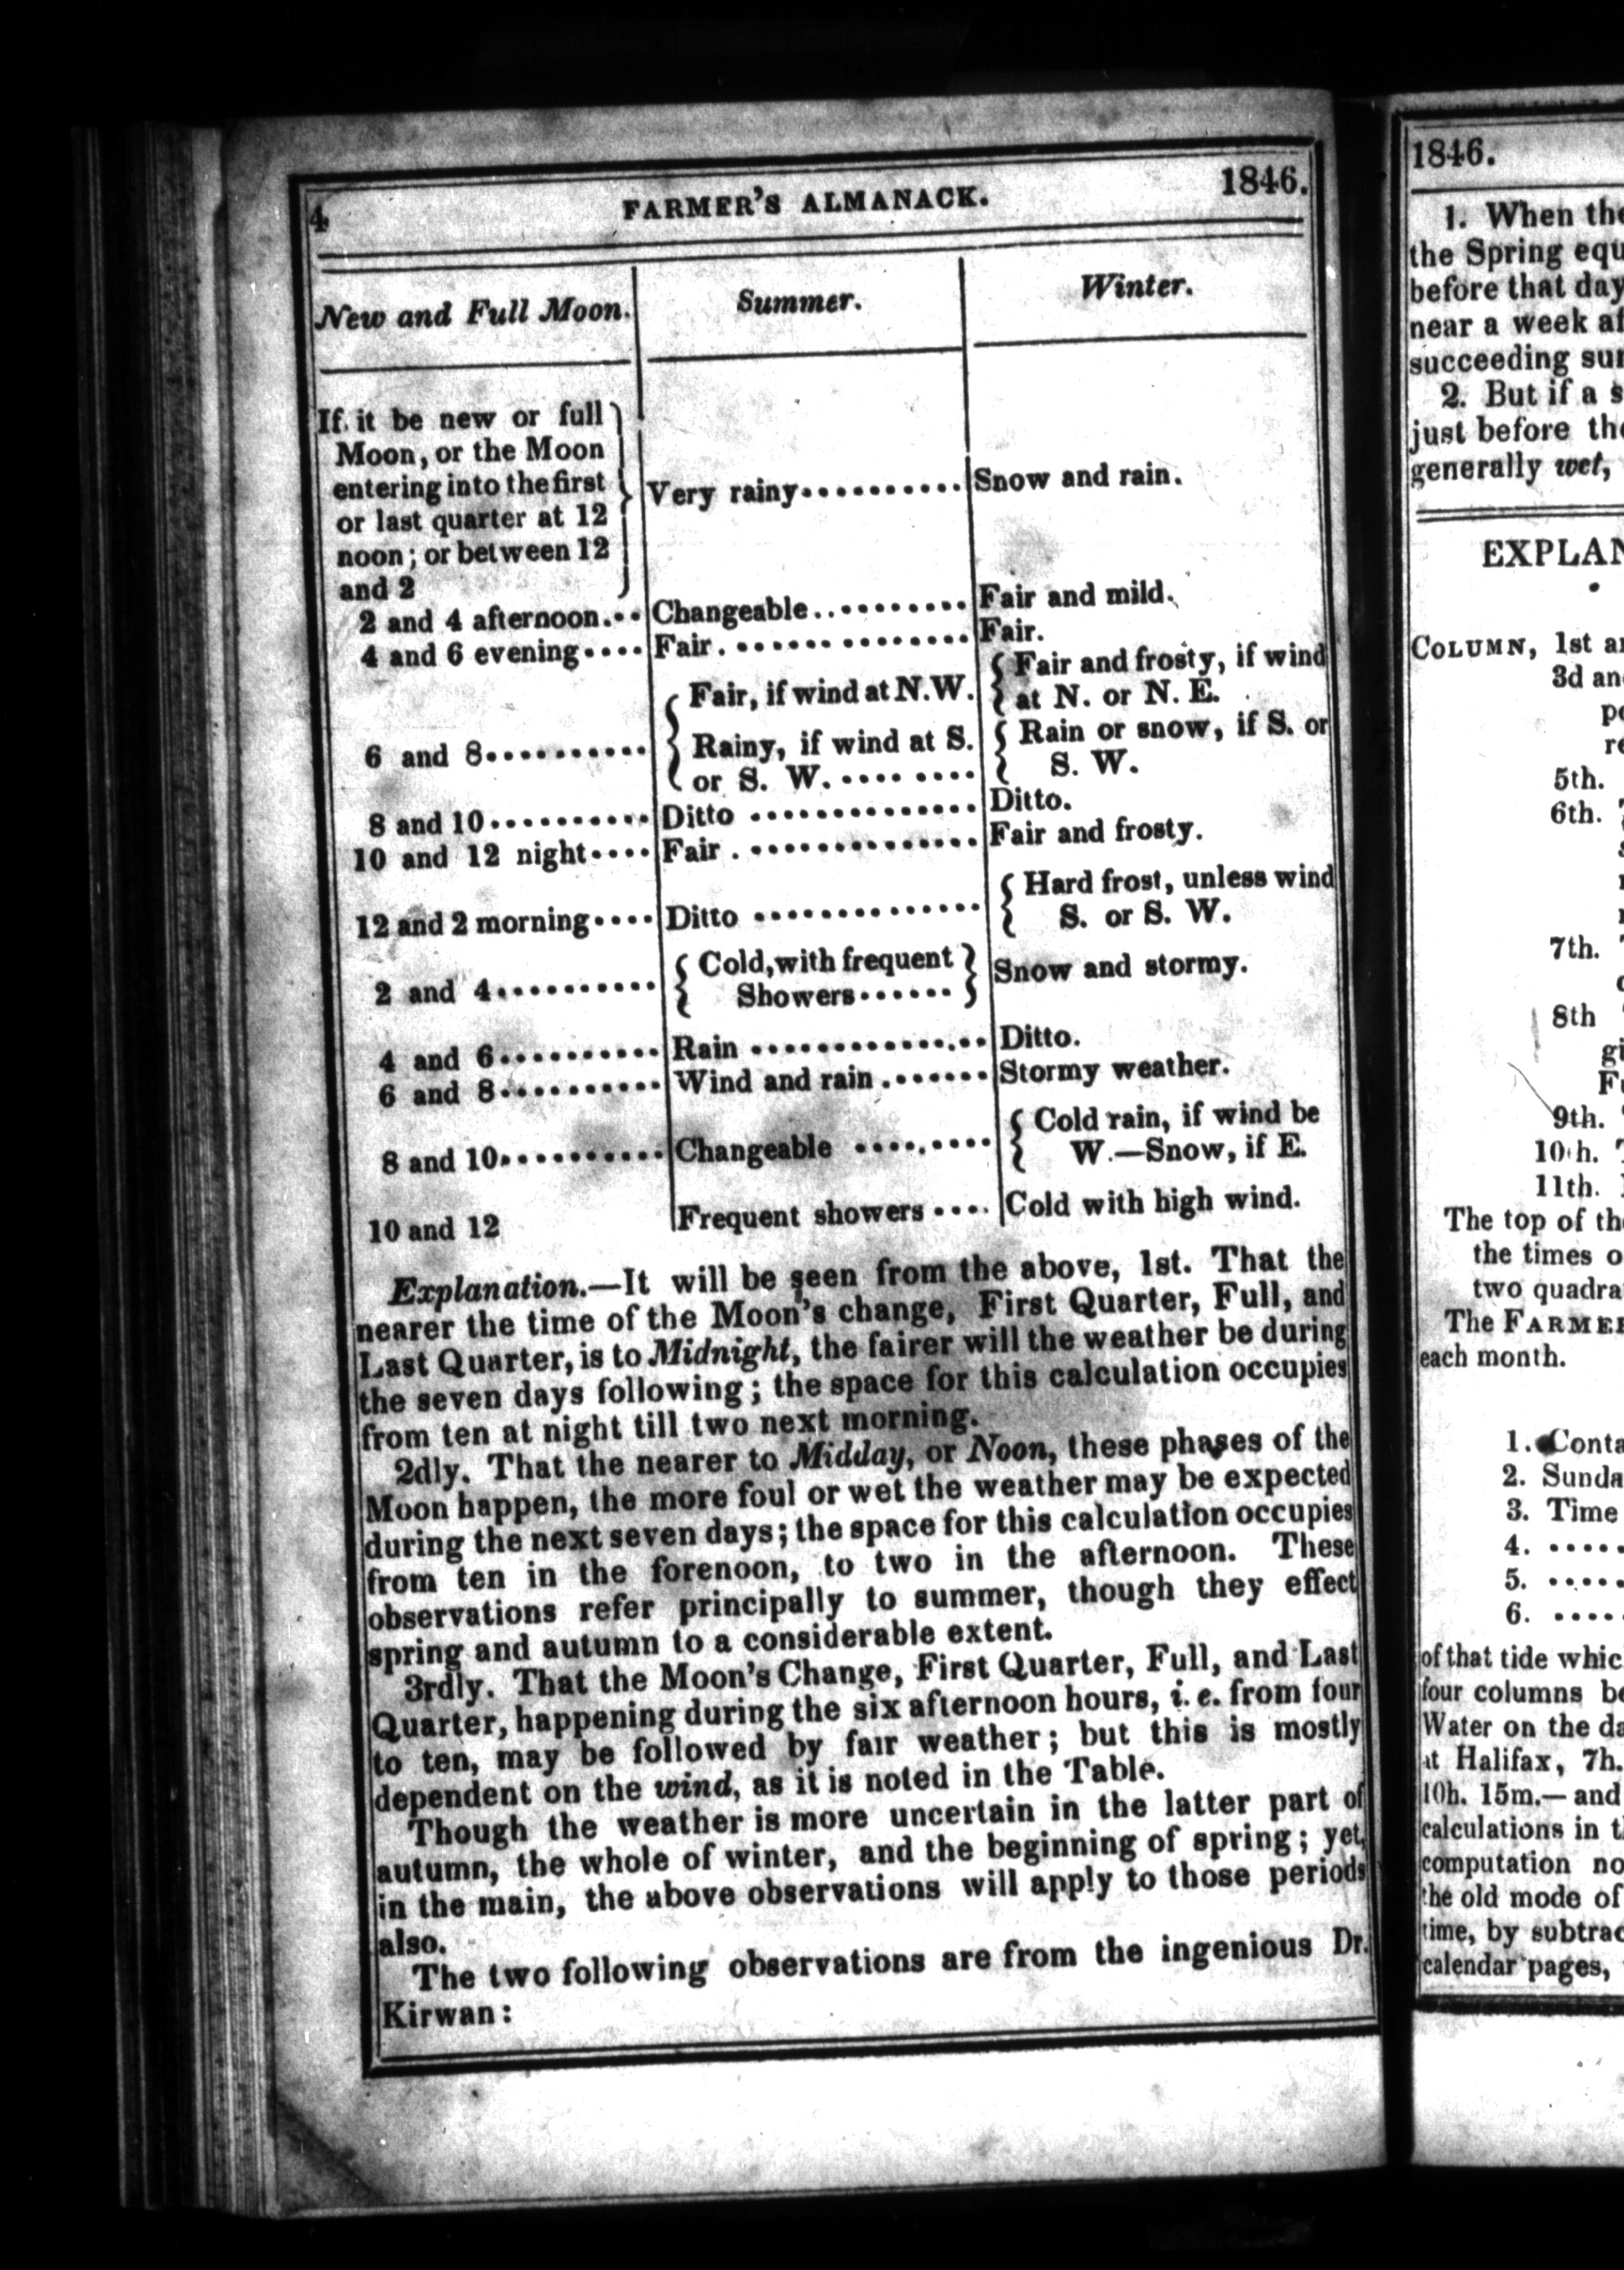 4 FARMER'S ALMANACK. 1846.
New and Full Moon. Summer. Winter.
If it be new or full
Moon, or the Moon
entering into the first
or last quarter at 12
noon; or between 12
and 2
Very rainy........... Snow and rain.
2 and 4 afternoon... Changeable........... Fair and mild.
4 and 6 evening.... Fair................ Fair.
6 and 8...........
Fair, if wind at N.W.
Rainy, if wind at S.
or S. W. .... ....
Fair and frosty, if wind
at N. or N. E.
Rain or snow, if S. or
S. W.
8 and 10.......... Ditto .............. Ditto.
10 and 12 night.... Fair ............... Fair and frosty.
12 and 2 morning.... Ditto ..............
Hard frost, unless wind
S. or S. W.
2 and 4...........
Cold, with frequent
Showers......
Snow and stormy.
4 and 6.......... Rain .............. Ditto.
6 and 8.......... Wind and rain ....... Stormy weather.
8 and 10.......... Changeable .........
Cold rain, if wind be
W.—Snow, if E.
10 and 12 Frequent showers .... Cold with high wind.
Explanation.—It will be seen from the above, 1st. That the
nearer the time of the Moon's change, First Quarter, Full, and
Last Quarter, is to Midnight, the fairer will the weather be during
the seven days following; the space for this calculation occupies
from ten at night till two next morning.
2dly. That the nearer to Midday, or Noon, these phases of the
Moon happen, the more foul or wet the weather may be expected
during the next seven days; the space for this calculation occupies
from ten in the forenoon, to two in the afternoon. These
observations refer principally to summer, though they effect
spring and autumn to a considerable extent.
3rdly. That the Moon's Change, First Quarter, Full, and Last
Quarter, happening during the six afternoon hours, i. e. from four
to ten, may be followed by fair weather; but this is mostly
dependent on the wind, as it is noted in the Table.
Though the weather is more uncertain in the latter part of
autumn, the whole of winter, and the beginning of spring; yet,
in the main, the above observations will apply to those periods
also.
The two following observations are from the ingenious Dr.
Kirwan:
1846.
1. When the
the Spring equ
before that day
near a week af
succeeding sum
2. But if a s
just before the
generally wet,
EXPLAN
COLUMN, 1st a
3d an
5th.
6th.
7th.
8th
gi
9th.
10th.
11th.
The top of the
the times o
two quadra
The FARMER
each month.
1. Conta
2. Sunda
3. Time
4. .....
5. .....
6. ....
of that tide whic
four columns be
Water on the da
at Halifax, 7h.
10h. 15m.—and
calculations in t
computation no
the old mode of
time, by subtrac
calendar pages,